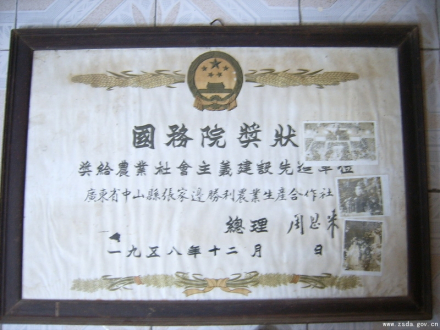 國務院獎狀
奖給農業社會主義建設先進單位
廣東省中山縣張家邊勝利農業生產合作社
總理 周恩來
一九五八年十二月 日
www.zsda.gov.cn